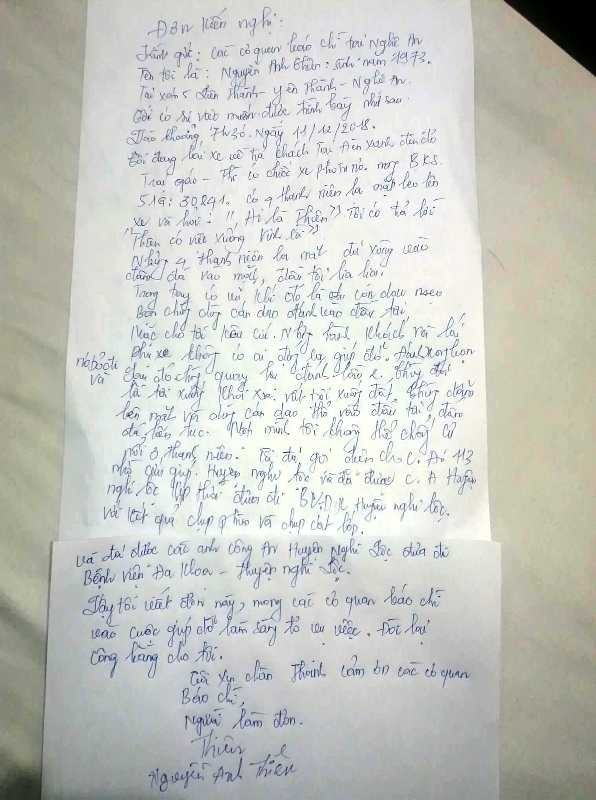 Đơn kiến nghị:
Kính gửi: các cơ quan báo chí tại Nghệ An
Tên tôi là: Nguyễn Anh Thiên: sinh năm 1973.
Tại xóm 5 - yên Thành - Nghệ An.
Tôi có sự việc muốn được trình bày như sau.
Vào khoảng 7h30. Ngày 11/12/2018.
Tôi đang lái xe về trả khách tại đèn xanh đèn đỏ
- Thì có chiếc xe màu đỏ. mang BKS.
51G: 30241. có 4 thanh niên lạ mặt leo lên
xe và hỏi: "Ai là Thiên" Tôi có trả lời
"Thiên có việc xuống
Những 4 thanh niên lạ mặt đã xông vào
đấm đá vào mặt, đầu tôi lia lịa.
Trong tay có vũ khí đó là con dao
Bọn chúng dùng cán dao đánh vào đầu tôi
Mặc cho tôi kêu cứu. Những hành khách và lái
phụ xe không có ai đứng ra giúp đỡ.
và
sau đó chúng quay lại đánh lần 2. chúng
là tôi xuống khỏi xe, vứt tôi xuống đất. chúng dẫm
lên mặt và dùng cán dao thô vào đầu tôi đấm
đá liên tục. Một mình tôi không thể chống cự
nổi 4 thanh niên. Tôi đã gọi điện cho C. An 113
nhờ giúp. Huyện nghi lộc và đã được C. A Huyện
nghi lộc đưa đi BV. Đ.K Huyện nghi lộc.
với kết quả chụp phim và chụp cắt lớp.
và đã được các anh công An Huyện Nghi Lộc đưa đi
Bệnh viện Đa Khoa - Huyện nghi Lộc.
Vậy tôi viết đơn này, mong các cơ quan báo chí
vào cuộc giúp đỡ làm sáng tỏ vụ việc. Đòi lại
công bằng cho tôi.
Tôi xin chân Thành cảm ơn các cơ quan
Báo chí,
Người làm đơn.
Thiên
Nguyễn Anh Thiên